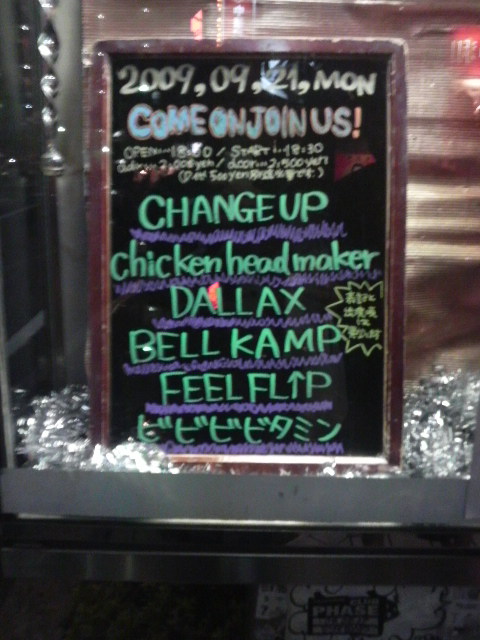 2009,09,21,MON
COME ON JOIN US!
OPEN…18:00 / START…18:30
2,000yen / door…2,500yen
CHANGE UP
chicken head maker
DALLAX
BELL KAMP
FEEL FL↑P
ビビビビタミン
PHASE